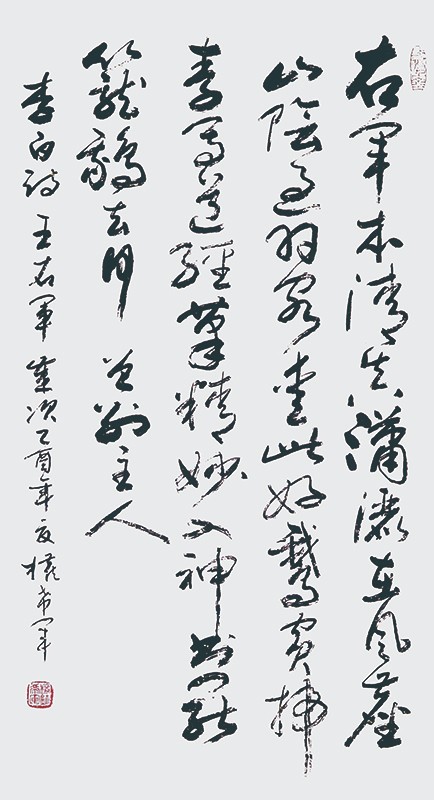 右軍本清真瀟灑在風塵
山陰過羽客愛此好鵝賓掃
素寫道經筆精妙入神書罷
籠鵝去何曾別主人
李白詩王右軍歲次乙酉年夏權希軍